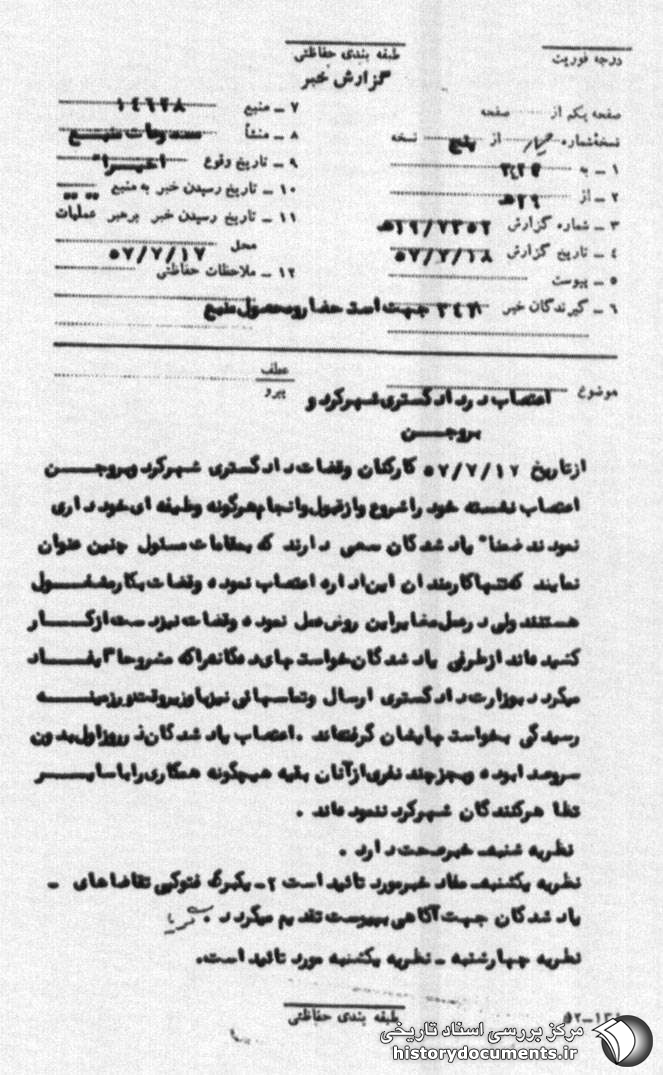 درجه فوریت
طبقه بندی حفاظتی
گزارش خبر
صفحه یکم از صفحه
نسخه شماره از پنج نسخه
۱ ـ به ۳۴۲
۲ ـ از ۲۹هـ
۳ ـ شماره گزارش ۱۹/۷۳۵۲هـ
۴ ـ تاریخ گزارش ۵۷/۷/۱۸
۵ ـ پیوست
۶ ـ گیرندگان خبر ۳۴۲ جهت استحضار و محصول منبع
۷ ـ منبع ۱۴۶۲۸
۸ ـ منشأ مسموعات منبع
۹ ـ تاریخ وقوع اخیراً
۱۰ ـ تاریخ رسیدن خبر به منبع " "
۱۱ ـ تاریخ رسیدن خبر برهبر عملیات
محل ۵۷/۷/۱۷
۱۲ ـ ملاحظات حفاظتی
موضوع اعتصاب در دادگستری شهرکرد و
بروجن
عطف
پیرو
ازتاریخ ۵۷/۷/۱۷ کارکنان وقضات دادگستری شهرکرد وبروجن
اعتصاب نشسته خود را شروع وازقبول وانجام هرگونه وظیفه ای خودداری
نمودند ضمنا" یاد شدگان سعی دارند که بمقامات مسئول چنین عنوان
نمایند که تنها کارمندان این اداره اعتصاب نموده وقضات بکار مشغول
هستند ولی در عمل مغایر این روش عمل نموده وقضات نیز دست از کار
کشیده اند از طرفی یاد شدگان خواست های ده گانه را که مشروحا" ایفاد
میگردد بوزارت دادگستری ارسال وتماسهائی نیز با وزیر وقت در زمینه
رسیدگی بخواست هایشان گرفته اند . اعتصاب یاد شدگان در روز اول بدون
سروصدا بوده وبجز چند نفری از آنان بقیه هیچگونه همکاری را با سایر
تظاهرکنندگان شهرکرد ننموده اند .
نظریه شنبه خبر صحت دارد .
نظریه یکشنبه مفاد خبر مورد تائید است ۲ـ یکبرگ فتوکپی تقاضاهای ـ
یاد شدگان جهت آگاهی بپیوست تقدیم میگردد .
نظریه چهارشنبه ـ نظریه یکشنبه مورد تائید است.
طبقه بندی حفاظتی
مرکز بررسی اسناد تاریخی
historydocuments.ir